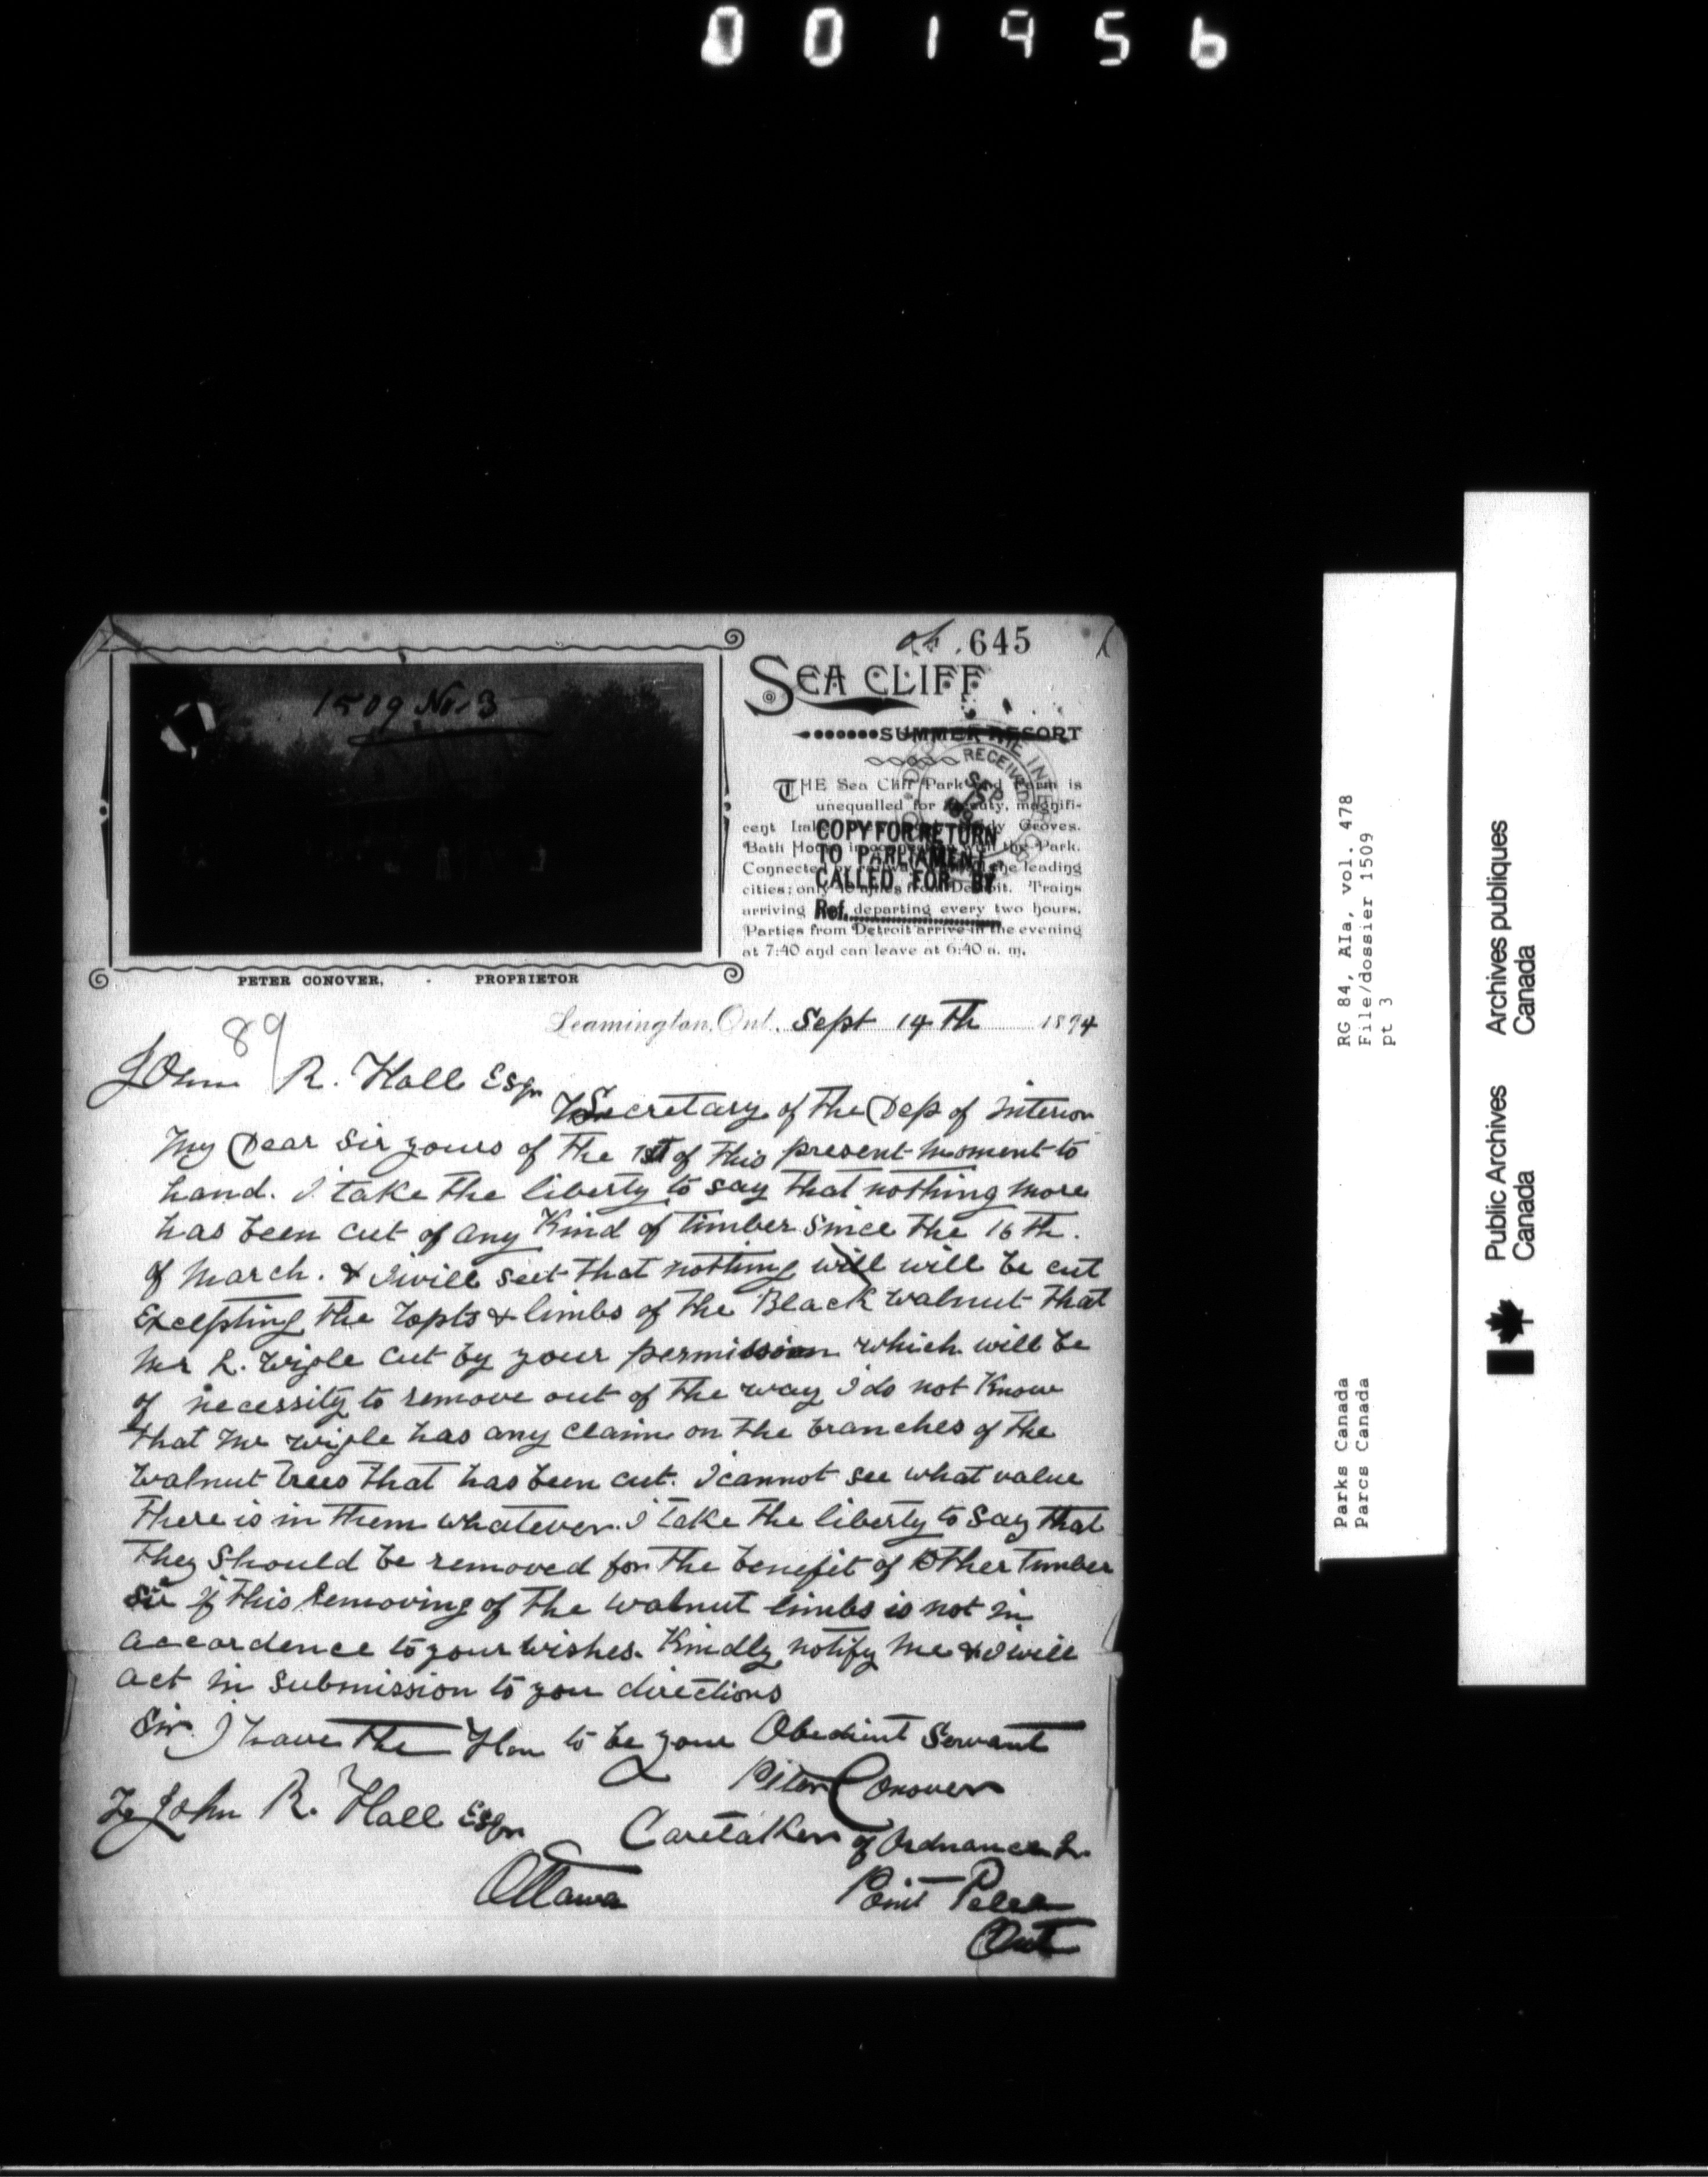 001956
645
1509 No. 3
SEA CLIFF
SUMMER RESORT
THE Sea Cliff Park and Farm is
unequalled for beauty, magnifi-
cent Lake Groves.
Bath House in connection with the Park.
Connected by railway the leading
cities; only 40 miles from Detroit. Trains
arriving departing every two hours.
Parties from Detroit arrive in the evening
at 7:40 and can leave at 6:40 a. m.
RECEIVED
SEP
COPY FOR RETURN
TO PARLIAMENT
CALLED FOR BY
Ref.
PETER CONOVER, PROPRIETOR
Leamington, Ont. Sept 14th 1894
89
John R. Hall Esqr
Secretary of the Dep of Interior
My Dear Sir yours of the 1st of this present moment to
hand. I take the liberty to say that nothing more
has been cut of any Kind of timber since the 16th.
of March. & I will seet that nothing will will be cut
Excepting the Topts & limbs of the Black walnut that
Mr L. Wigle cut by your permission which will be
of necessity to remove out of the way I do not Know
that Mr Wigle has any claim on the branches of the
walnut trees that has been cut. I cannot see what value
there is in them whatever. I take the liberty to say that
they should be removed for the benefit of Other timber
Sir if this removing of the walnut limbs is not in
accordence to your wishes. Kindly notify me & I will
act in submission to you directions
Sir. I have the Hon to be your Obedient Servant
Peter Conover
To John R. Hall Esqr
Caretaker of Ordnance L.
Ottawa
Point Pelee
Ont
RG 84, AIa, vol. 478
File/dossier 1509
pt 3
Parks Canada
Parcs Canada
Public Archives
Canada
Archives publiques
Canada